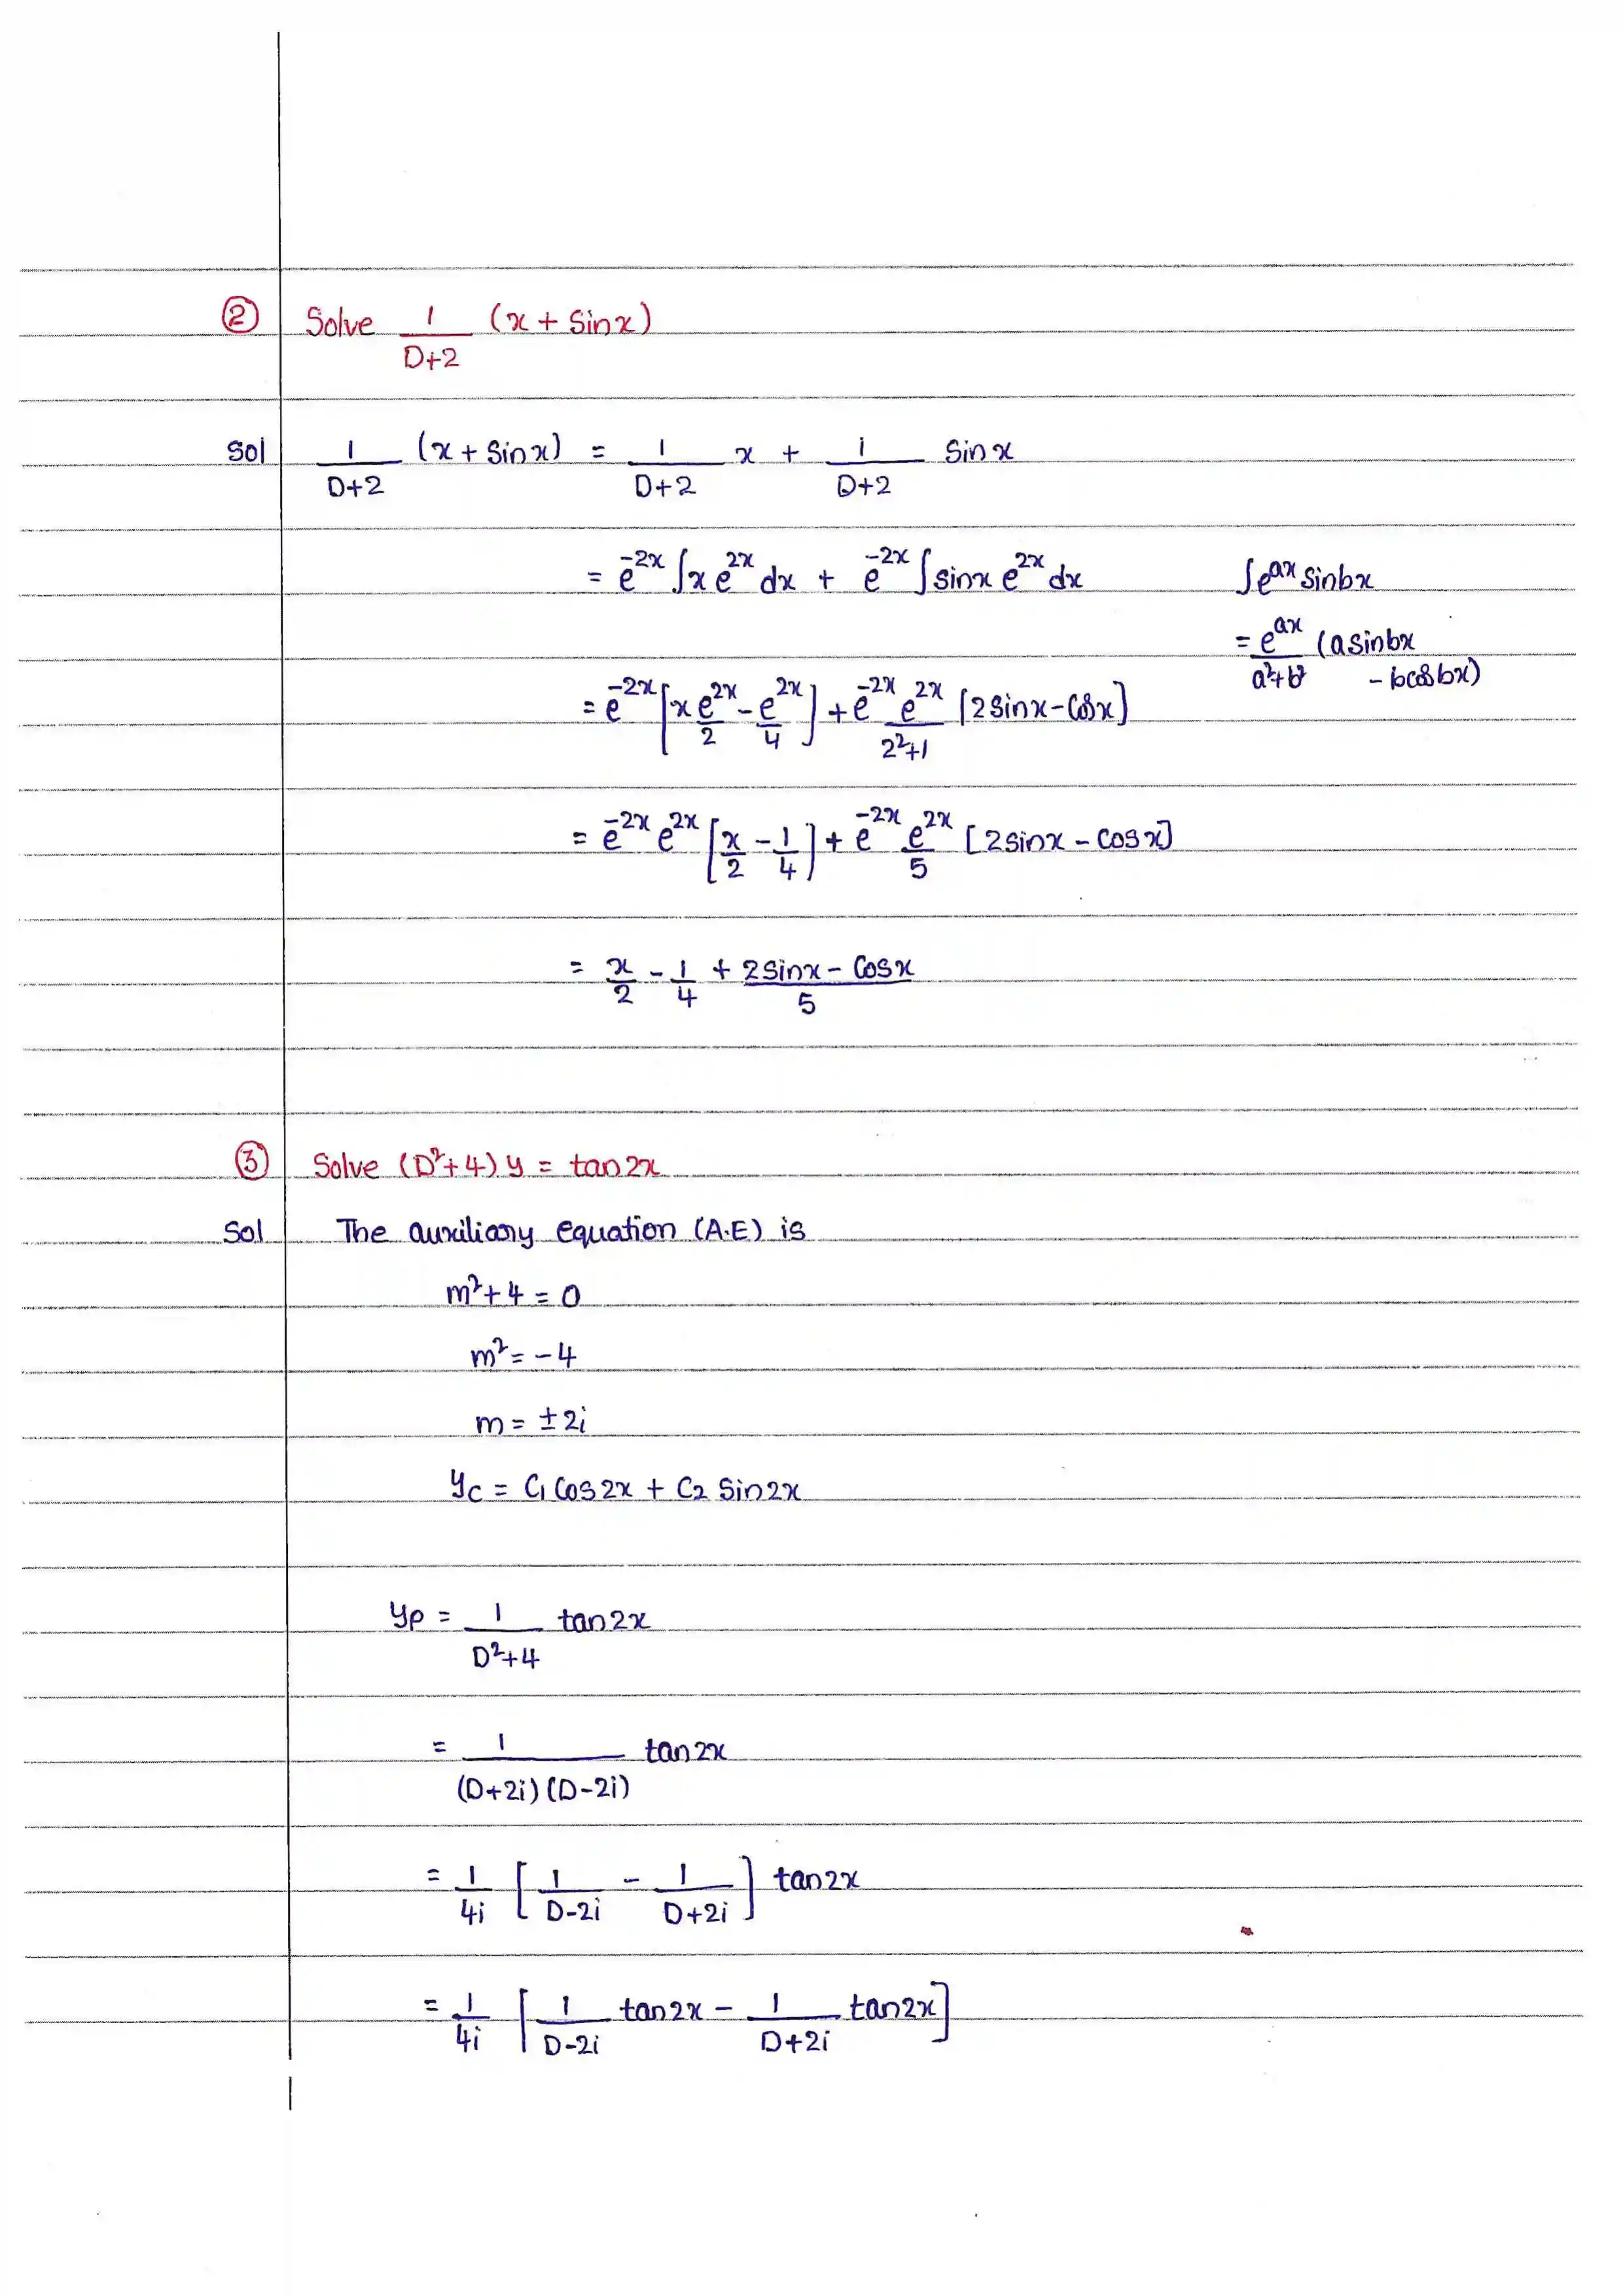 ② Solve 1/(D+2) (x + Sinx)
Sol 1/(D+2) (x + Sinx) = 1/(D+2) x + 1/(D+2) Sinx
= e^{-2x} ∫x e^{2x} dx + e^{-2x} ∫sinx e^{2x} dx
∫e^{ax} sinbx
= e^{ax}/(a²+b²) (asinbx
- bcosbx)
= e^{-2x} [x e^{2x}/2 - e^{2x}/4] + e^{-2x} e^{2x}/(2²+1) [2sinx - Cosx]
= e^{-2x} e^{2x} [x/2 - 1/4] + e^{-2x} e^{2x}/5 [2sinx - Cosx]
= x/2 - 1/4 + (2sinx - Cosx)/5
③ Solve (D²+4) y = tan2x
Sol The auxiliary equation (A.E) is
m²+4 = 0
m² = -4
m = ±2i
yc = C₁ Cos2x + C₂ Sin2x
yp = 1/(D²+4) tan2x
= 1/((D+2i)(D-2i)) tan2x
= 1/4i [1/(D-2i) - 1/(D+2i)] tan2x
= 1/4i [1/(D-2i) tan2x - 1/(D+2i) tan2x]